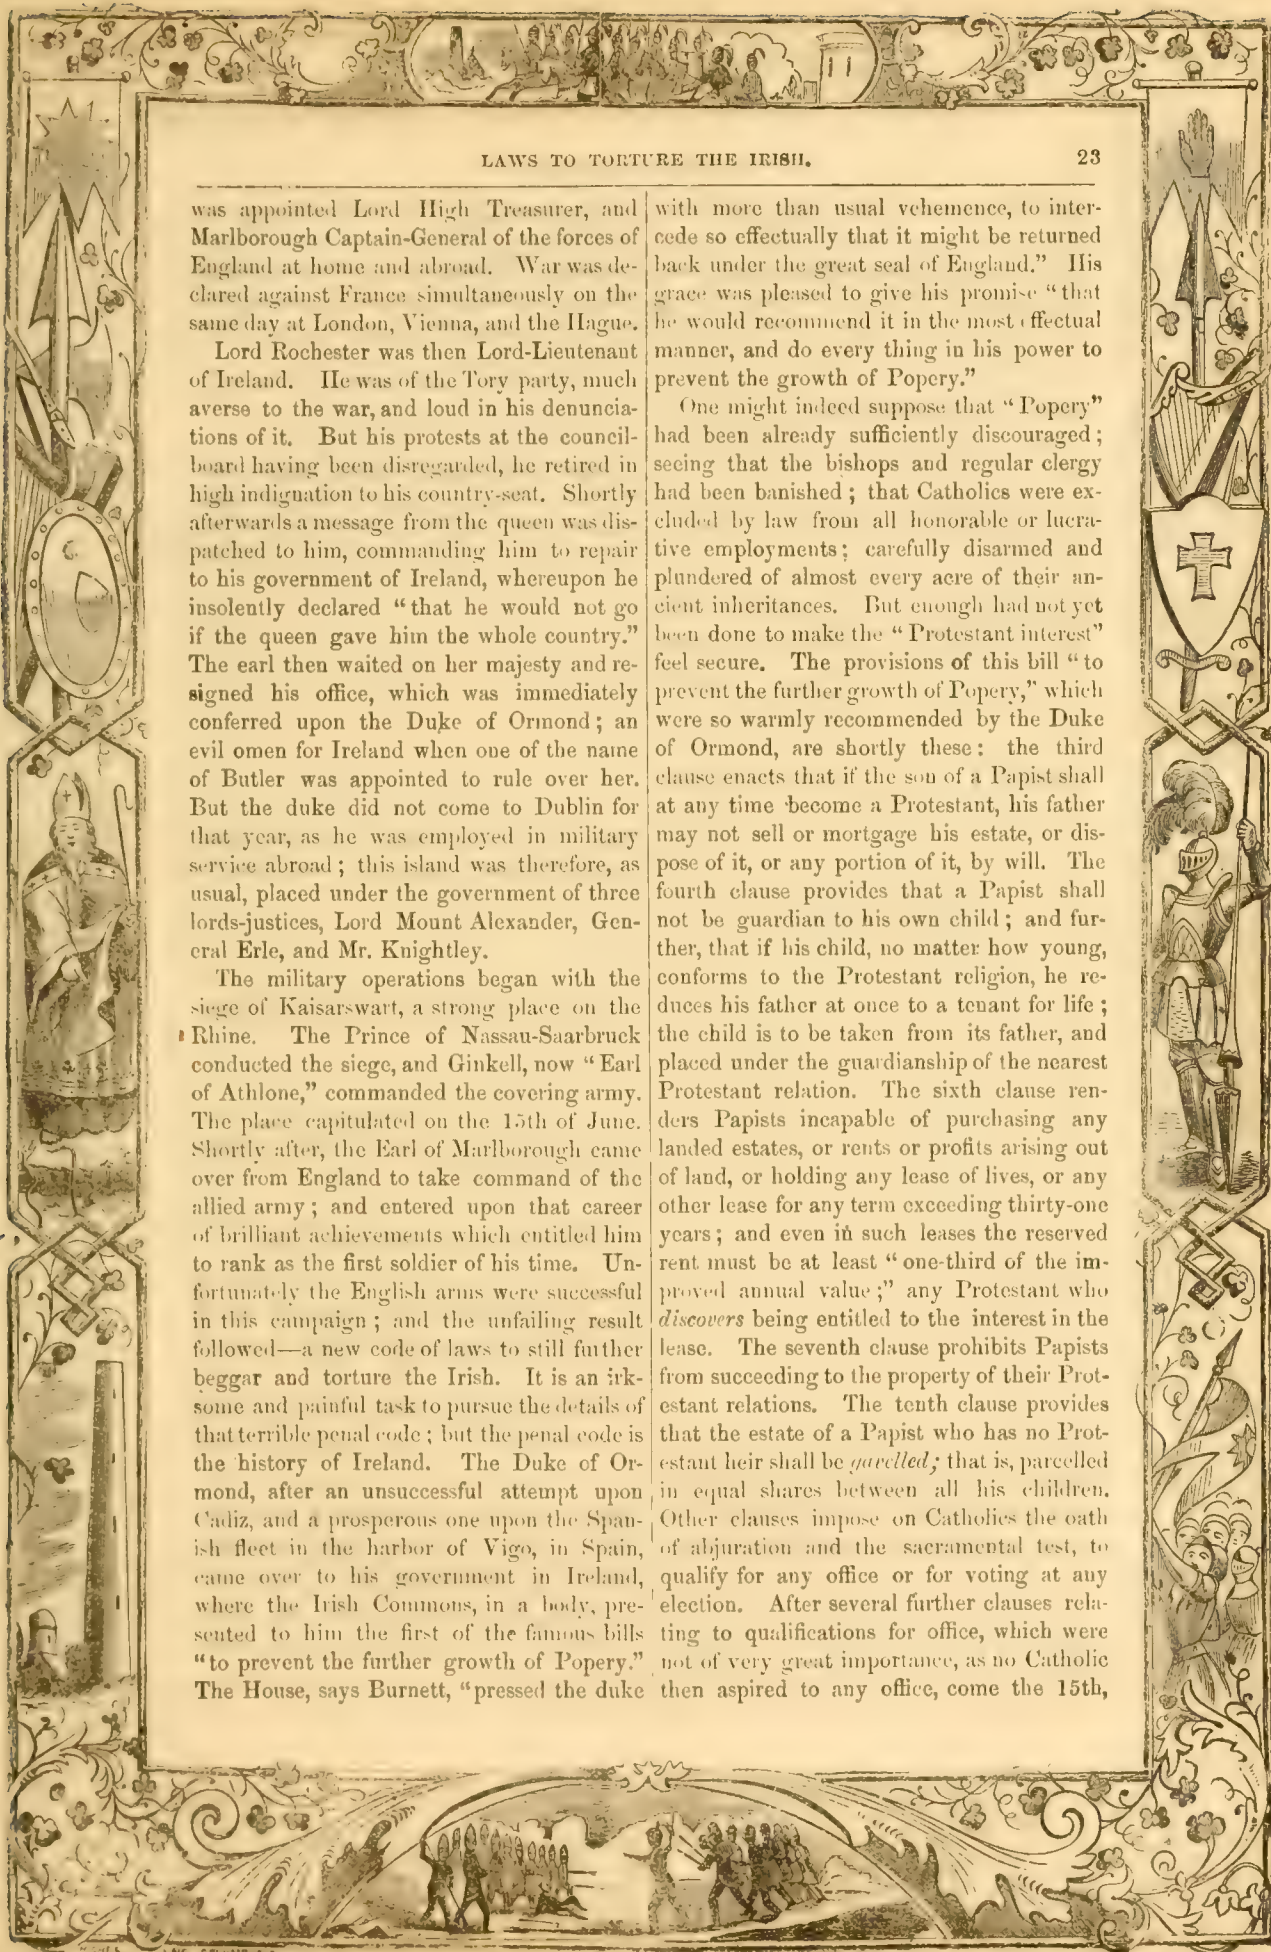 LAWS TO TORTURE THE IRISH.
23
was appointed Lord High Treasurer, and
Marlborough Captain-General of the forces of
England at home and abroad. War was de-
clared against France simultaneously on the
same day at London, Vienna, and the Hague.
Lord Rochester was then Lord-Lieutenant
of Ireland. He was of the Tory party, much
averse to the war, and loud in his denuncia-
tions of it. But his protests at the council-
board having been disregarded, he retired in
high indignation to his country-seat. Shortly
afterwards a message from the queen was dis-
patched to him, commanding him to repair
to his government of Ireland, whereupon he
insolently declared "that he would not go
if the queen gave him the whole country."
The earl then waited on her majesty and re-
signed his office, which was immediately
conferred upon the Duke of Ormond; an
evil omen for Ireland when one of the name
of Butler was appointed to rule over her.
But the duke did not come to Dublin for
that year, as he was employed in military
service abroad; this island was therefore, as
usual, placed under the government of three
lords-justices, Lord Mount Alexander, Gen-
eral Erle, and Mr. Knightley.
The military operations began with the
siege of Kaisarswart, a strong place on the
Rhine. The Prince of Nassau-Saarbruck
conducted the siege, and Ginkell, now "Earl
of Athlone," commanded the covering army.
The place capitulated on the 15th of June.
Shortly after, the Earl of Marlborough came
over from England to take command of the
allied army; and entered upon that career
of brilliant achievements which entitled him
to rank as the first soldier of his time. Un-
fortunately the English arms were successful
in this campaign; and the unfailing result
followed—a new code of laws to still further
beggar and torture the Irish. It is an irk-
some and painful task to pursue the details of
that terrible penal code; but the penal code is
the history of Ireland. The Duke of Or-
mond, after an unsuccessful attempt upon
Cadiz, and a prosperous one upon the Span-
ish fleet in the harbor of Vigo, in Spain,
came over to his government in Ireland,
where the Irish Commons, in a body, pre-
sented to him the first of the famous bills
"to prevent the further growth of Popery."
The House, says Burnett, "pressed the duke
with more than usual vehemence, to inter-
cede so effectually that it might be returned
back under the great seal of England." His
grace was pleased to give his promise "that
he would recommend it in the most effectual
manner, and do every thing in his power to
prevent the growth of Popery."
One might indeed suppose that "Popery"
had been already sufficiently discouraged;
seeing that the bishops and regular clergy
had been banished; that Catholics were ex-
cluded by law from all honorable or lucra-
tive employments; carefully disarmed and
plundered of almost every acre of their an-
cient inheritances. But enough had not yet
been done to make the "Protestant interest"
feel secure. The provisions of this bill "to
prevent the further growth of Popery," which
were so warmly recommended by the Duke
of Ormond, are shortly these: the third
clause enacts that if the son of a Papist shall
at any time become a Protestant, his father
may not sell or mortgage his estate, or dis-
pose of it, or any portion of it, by will. The
fourth clause provides that a Papist shall
not be guardian to his own child; and fur-
ther, that if his child, no matter how young,
conforms to the Protestant religion, he re-
duces his father at once to a tenant for life;
the child is to be taken from its father, and
placed under the guardianship of the nearest
Protestant relation. The sixth clause ren-
ders Papists incapable of purchasing any
landed estates, or rents or profits arising out
of land, or holding any lease of lives, or any
other lease for any term exceeding thirty-one
years; and even in such leases the reserved
rent must be at least "one-third of the im-
proved annual value;" any Protestant who
discovers being entitled to the interest in the
lease. The seventh clause prohibits Papists
from succeeding to the property of their Prot-
estant relations. The tenth clause provides
that the estate of a Papist who has no Prot-
estant heir shall be gavelled; that is, parcelled
in equal shares between all his children.
Other clauses impose on Catholics the oath
of abjuration and the sacramental test, to
qualify for any office or for voting at any
election. After several further clauses rela-
ting to qualifications for office, which were
not of very great importance, as no Catholic
then aspired to any office, come the 15th,